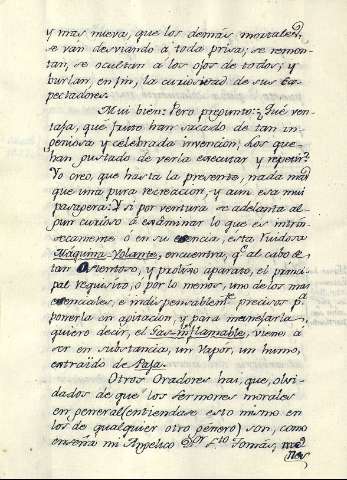 y mas nueva, que los demás mortales,
se van desviando á toda prisa; se remon-
tan, se ocultan á los ojos de todos; y
burlan, en fin, la curiosidad de sus Es-
pectadores.
Mui bien: Pero pregunto: ¿Qué ven-
taja, que fruto han sacado de tan in-
geniosa y celebrada invencion, los que
han gustado de verla executar y repetir?
Yo creo, que hasta la presente, nada mas
que una pura recreacion, y aun esa mui
pasagera: Y si por ventura se adelanta al-
gun curioso á exâminar lo que es intrin-
secamente ó en su esencia, esta ruidosa
Máquina Volante, encuentra, qe. al cabo de
tan ostentoso, y prolixo aparato, el princi-
pal requisito, ó por lo menos, uno de los mas
esenciales, é indispensablemte. precisos pa.
ponerla en agitacion, y para manejarla,
quiero decir, el Gas-inflamable, viene á
ser en substancia, un vapor, un humo,
extraido de Paja.
Otros Oradores hai, que, olvi-
dados de que los sermones morales
en general (entiendase esto mismo en
los de qualquier otro género) son, como
enseña mi Angelico Dor. Sto. Tomás,